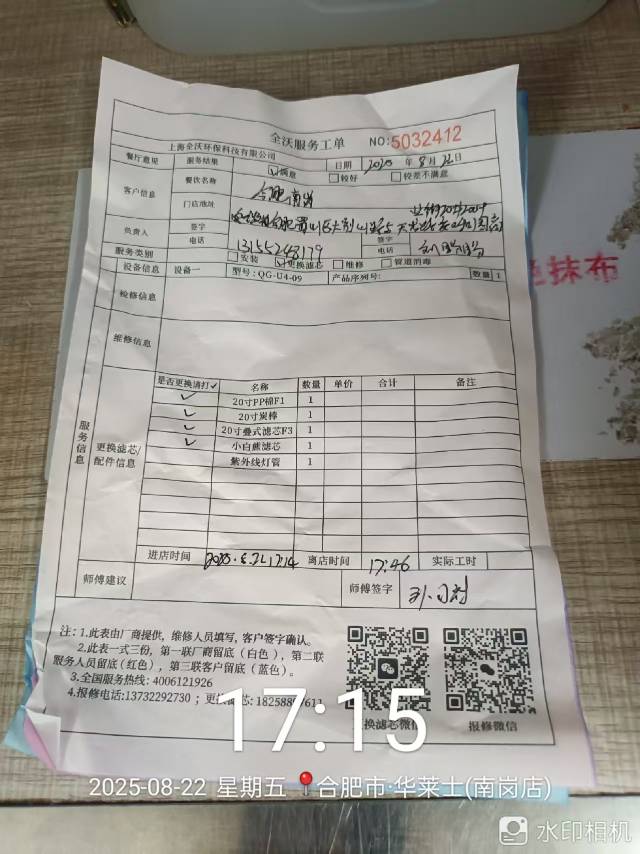 全沃服务工单 NO:5032412
上海全沃环保科技有限公司
餐厅意见 服务结果 ☑满意 日期 年 8月22日
□较好 □较差不满意
客户信息 餐饮名称 合肥南岗
门店地址
负责人 签字 签字
电话 13155248179 电话
服务类别 □安装 ☑更换滤芯 □维修 □管道消毒
设备信息 设备一 型号:QG-U4-09 产品序列号: 数量 1
检修信息
维修信息
服务信息
更换滤芯/配件信息
是否更换请打✓ 名称 数量 单价 合计 备注
✓ 20寸PP棉F1 1
✓ 20寸炭棒 1
✓ 20寸叠式滤芯F3 1
✓ 小白熊滤芯 1
紫外线灯管 1
进店时间 17:14 离店时间 17:46 实际工时
师傅建议 师傅签字
注:1.此表由厂商提供,维修人员填写,客户签字确认。
2.此表一式三份,第一联厂商留底(白色),第二联
服务人员留底(红色),第三联客户留底(蓝色)。
3.全国服务热线:4006121926
4.报修电话:13732292730;更换滤芯:18258897611
换滤芯微信 报修微信
抹布
17:15
2025-08-22 星期五 合肥市·华莱士(南岗店)
水印相机